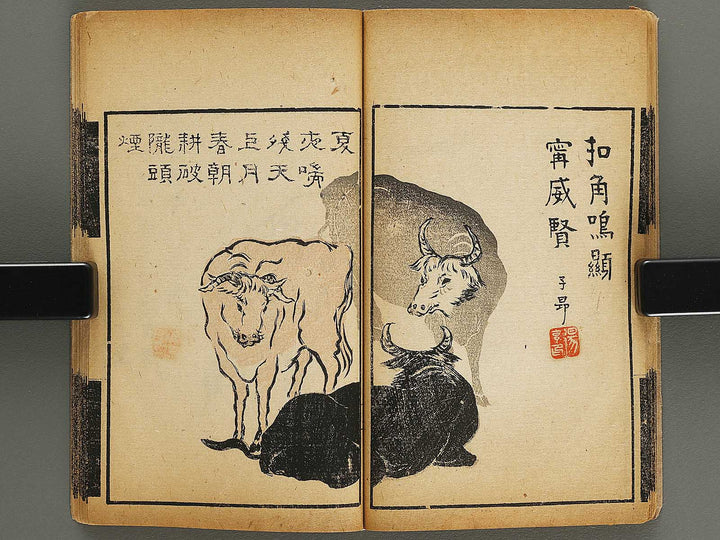 扣角鳴顯
甯威賢
子昂
夏
夜喘
後天
上月
春朝
耕破
隴頭
煙